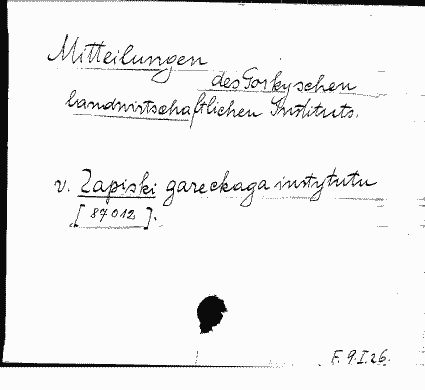 Mitteilungen
des Gorkyschen
landwirtschaftlichen Instituts.
v. Zapiski gareckaga instytutu
[87012].
F. 9.I.26.